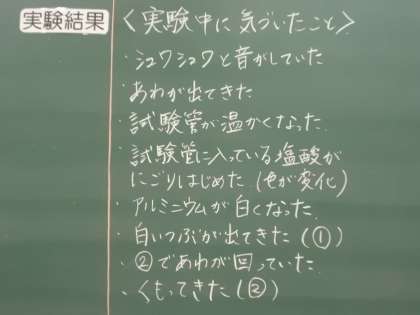 実験結果
〈実験中に気づいたこと〉
・シュワシュワと音がしていた
・あわが出てきた
・試験管が温かくなった.
・試験管に入っている塩酸が
にごりはじめた.(色が変化)
・アルミニウムが白くなった.
・白いつぶが出てきた(①)
・②であわが回っていた.
・くもってきた(②)